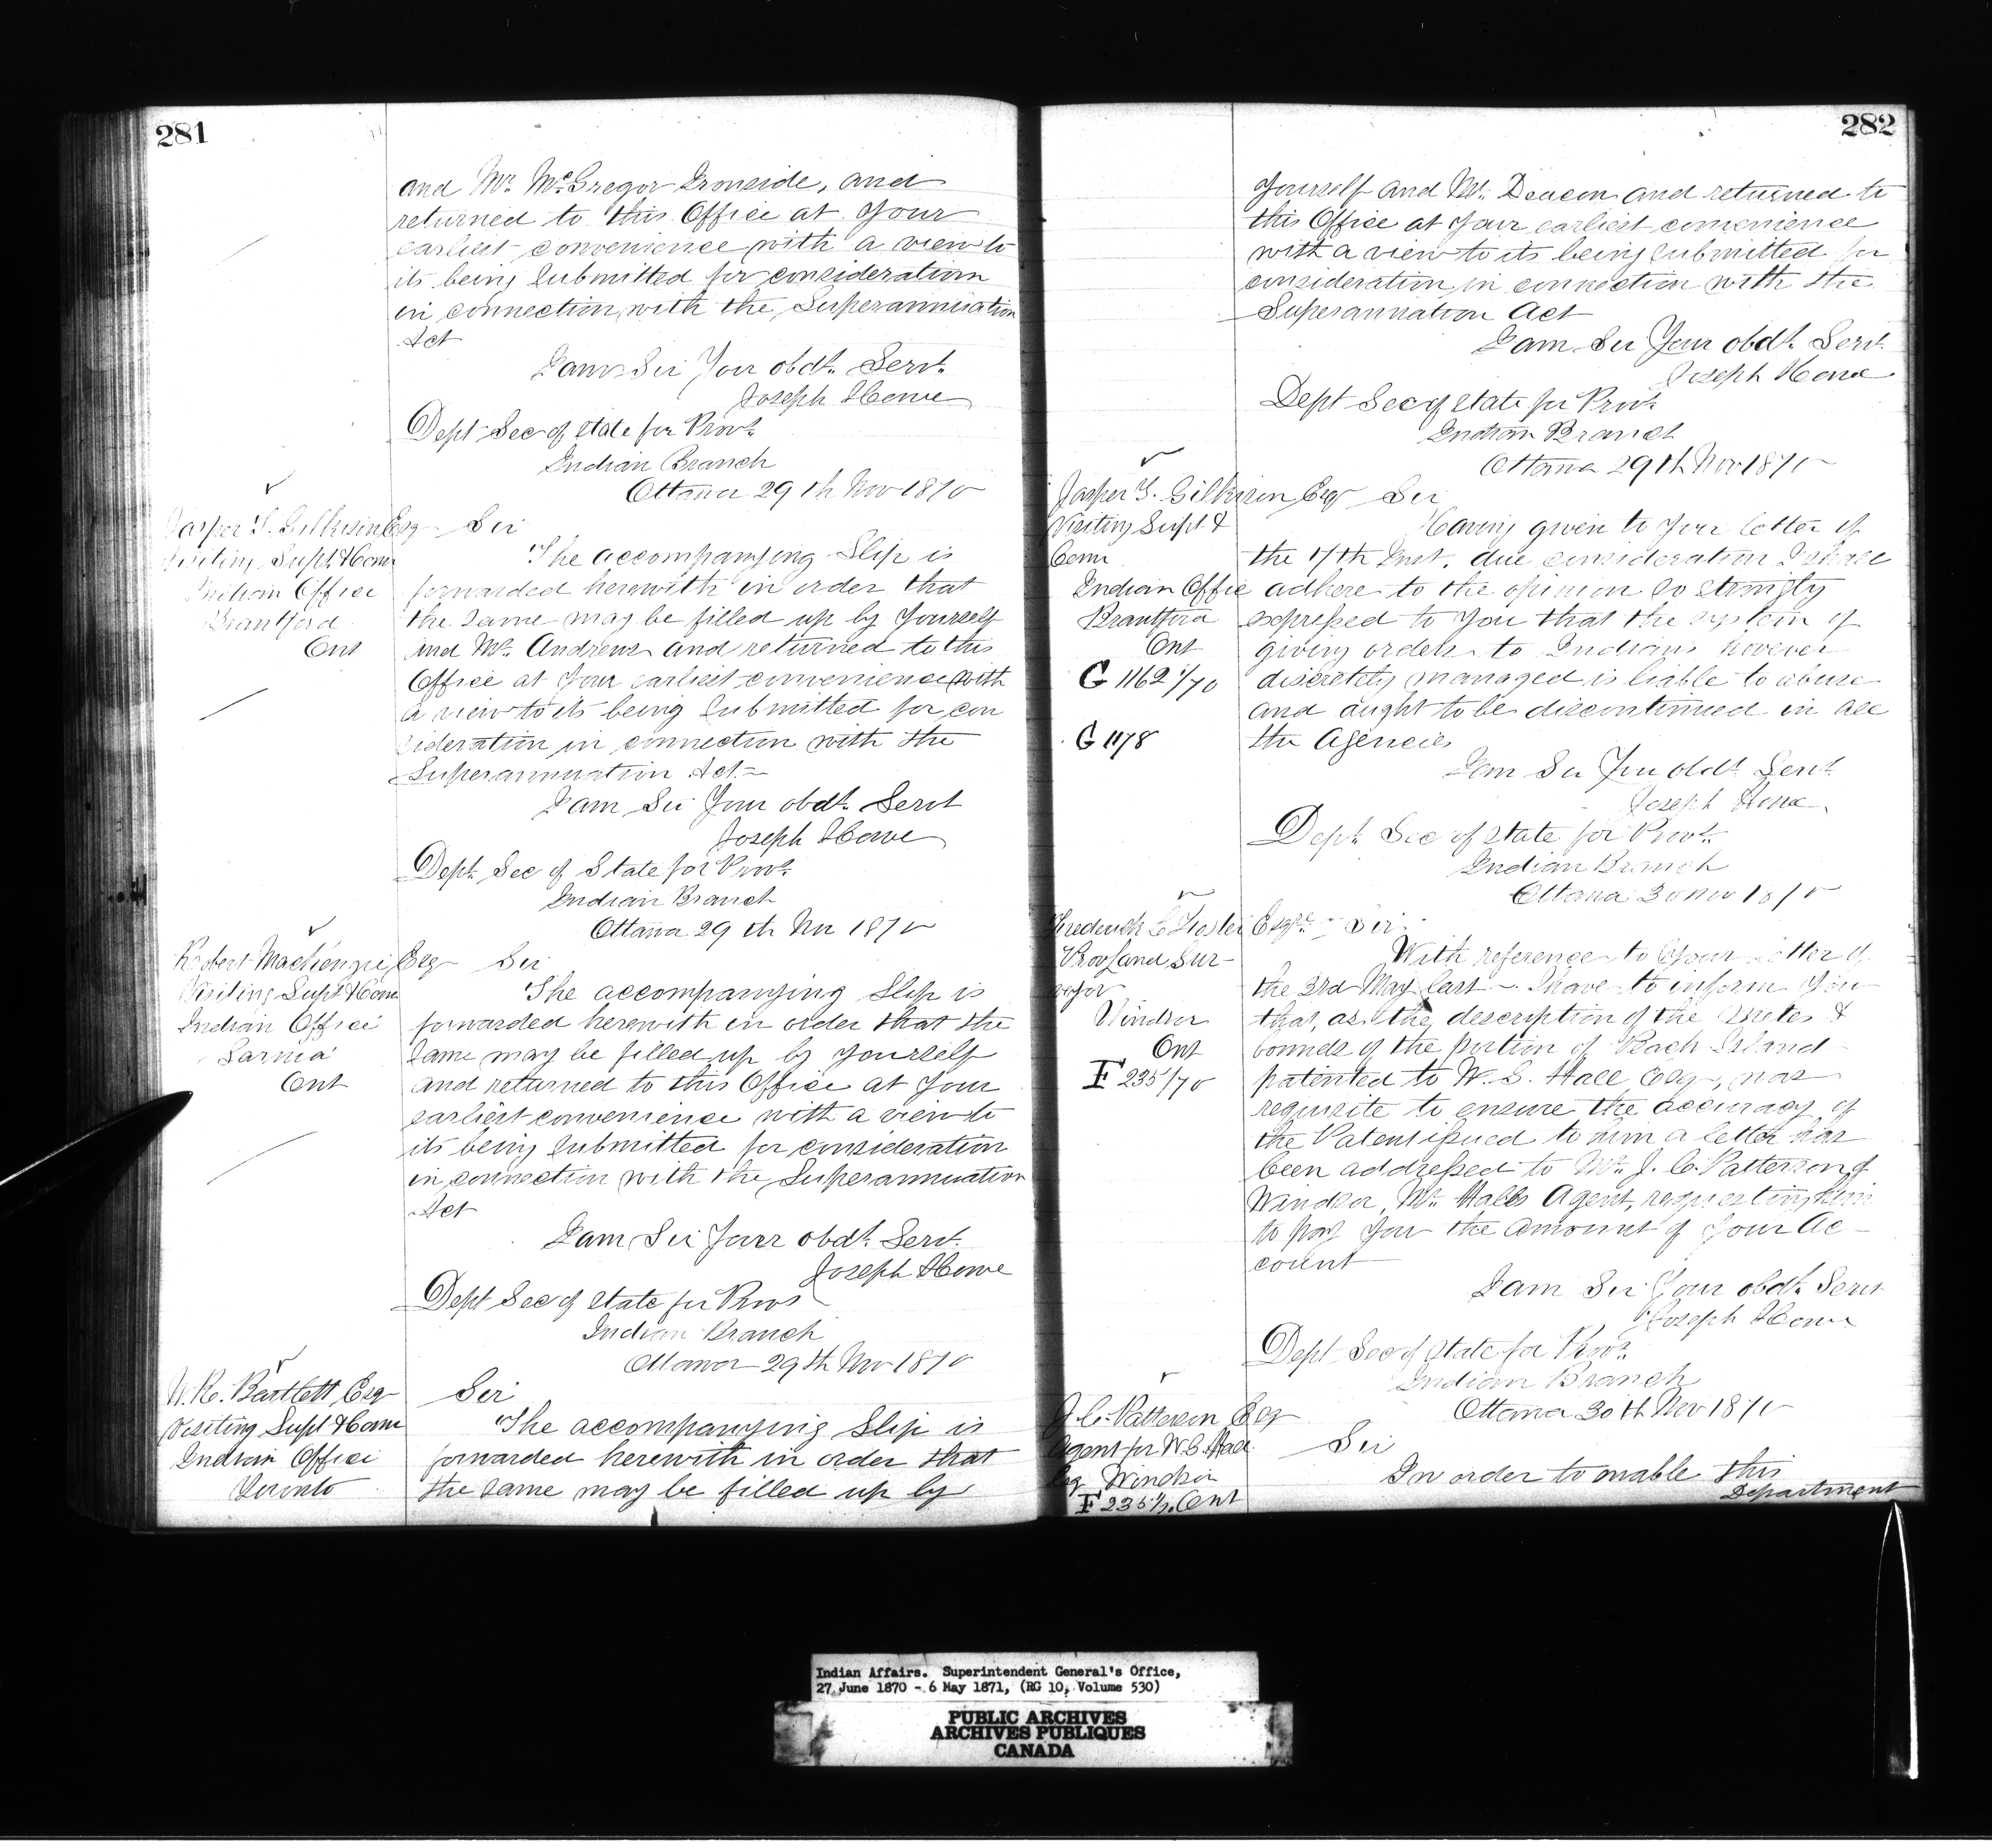 281
and Mr. McGregor Ironside, and
returned to this Office at Your
earliest convenience with a view to
its being submitted for consideration
in connection with the Superannuation
Act
I am Sir Your obdt. Servt.
Joseph Howe
Dept Sec of State for Provs.
Indian Branch
Ottawa 29th Nov 1870
Jasper T. Gilkison Esq
Visiting Supt & Com
Indian Office
Brantford
Ont
Sir
The accompanying Slip is
forwarded herewith in order that
the same may be filled up by Yourself
and Mr. Andrews and returned to this
Office at Your earliest convenience with
a view to its being submitted for con
sideration in connection with the
Superannuation Act
I am Sir Your obdt. Servt
Joseph Howe
Dept. Sec of State for Provs.
Indian Branch
Ottawa 29th Nov 1870
Robert Mackenzie Esq
Visiting Supt & Com
Indian Office
Sarnia
Ont
Sir
The accompanying Slip is
forwarded herewith in order that the
same may be filled up by Yourself
and returned to this Office at Your
earliest convenience with a view to
its being submitted for consideration
in connection with the Superannuation
Act
I am Sir Your obdt. Servt.
Joseph Howe
Dept Sec of State for Provs
Indian Branch
Ottawa 29th Nov 1870
W.R. Bartlett Esq
Visiting Supt & Com
Indian Office
Toronto
Sir
The accompanying Slip is
forwarded herewith in order that
the same may be filled up by
282
Yourself and Mr. Deacon and returned to
this Office at Your earliest convenience
with a view to its being submitted for
consideration in connection with the
Superannuation Act
I am Sir Your obdt. Servt.
Joseph Howe
Dept Sec of State for Provs.
Indian Branch
Ottawa 29th Nov 1870
Jasper T. Gilkison Esq
Visiting Supt &
Com
Indian Office
Brantford
Ont
G 1162 1/70
G 1178
Sir
Having given to Your letter of
the 17th Inst. due consideration I shall
adhere to the opinion so strongly
expressed to You that the system of
giving orders to Indians however
discreetly managed is liable to abuse
and ought to be discontinued in all
the Agencies
I am Sir Your obdt. Servt
Joseph Howe
Dept. Sec of State for Provs.
Indian Branch
Ottawa 30 Nov 1870
Frederick L Foster Esqre
Prov Land Sur-
veyor
Windsor
Ont
F 235/70
Sir
With reference to Your letter of
the 3rd May last I have to inform You
that, as the description of the metes &
bounds of the portion of Peach Island
patented to W. G. Hall Esq, was
requisite to ensure the accuracy of
the Patent issued to him a letter has
been addressed to Mr. J. C. Patterson of
Windsor, Mr. Halls Agent, requesting him
to pay You the amount of Your Ac-
count
I am Sir Your obdt. Servt
Joseph Howe
Dept Sec of State for Provs.
Indian Branch
Ottawa 30th Nov 1870
J. C. Patterson Esq
Agent for W.G. Hall
Esq Windsor
F 235 1/2. Ont
Sir
In order to enable this
Department
Indian Affairs. Superintendent General's Office,
27 June 1870 - 6 May 1871, (RG 10, Volume 530)
PUBLIC ARCHIVES
ARCHIVES PUBLIQUES
CANADA